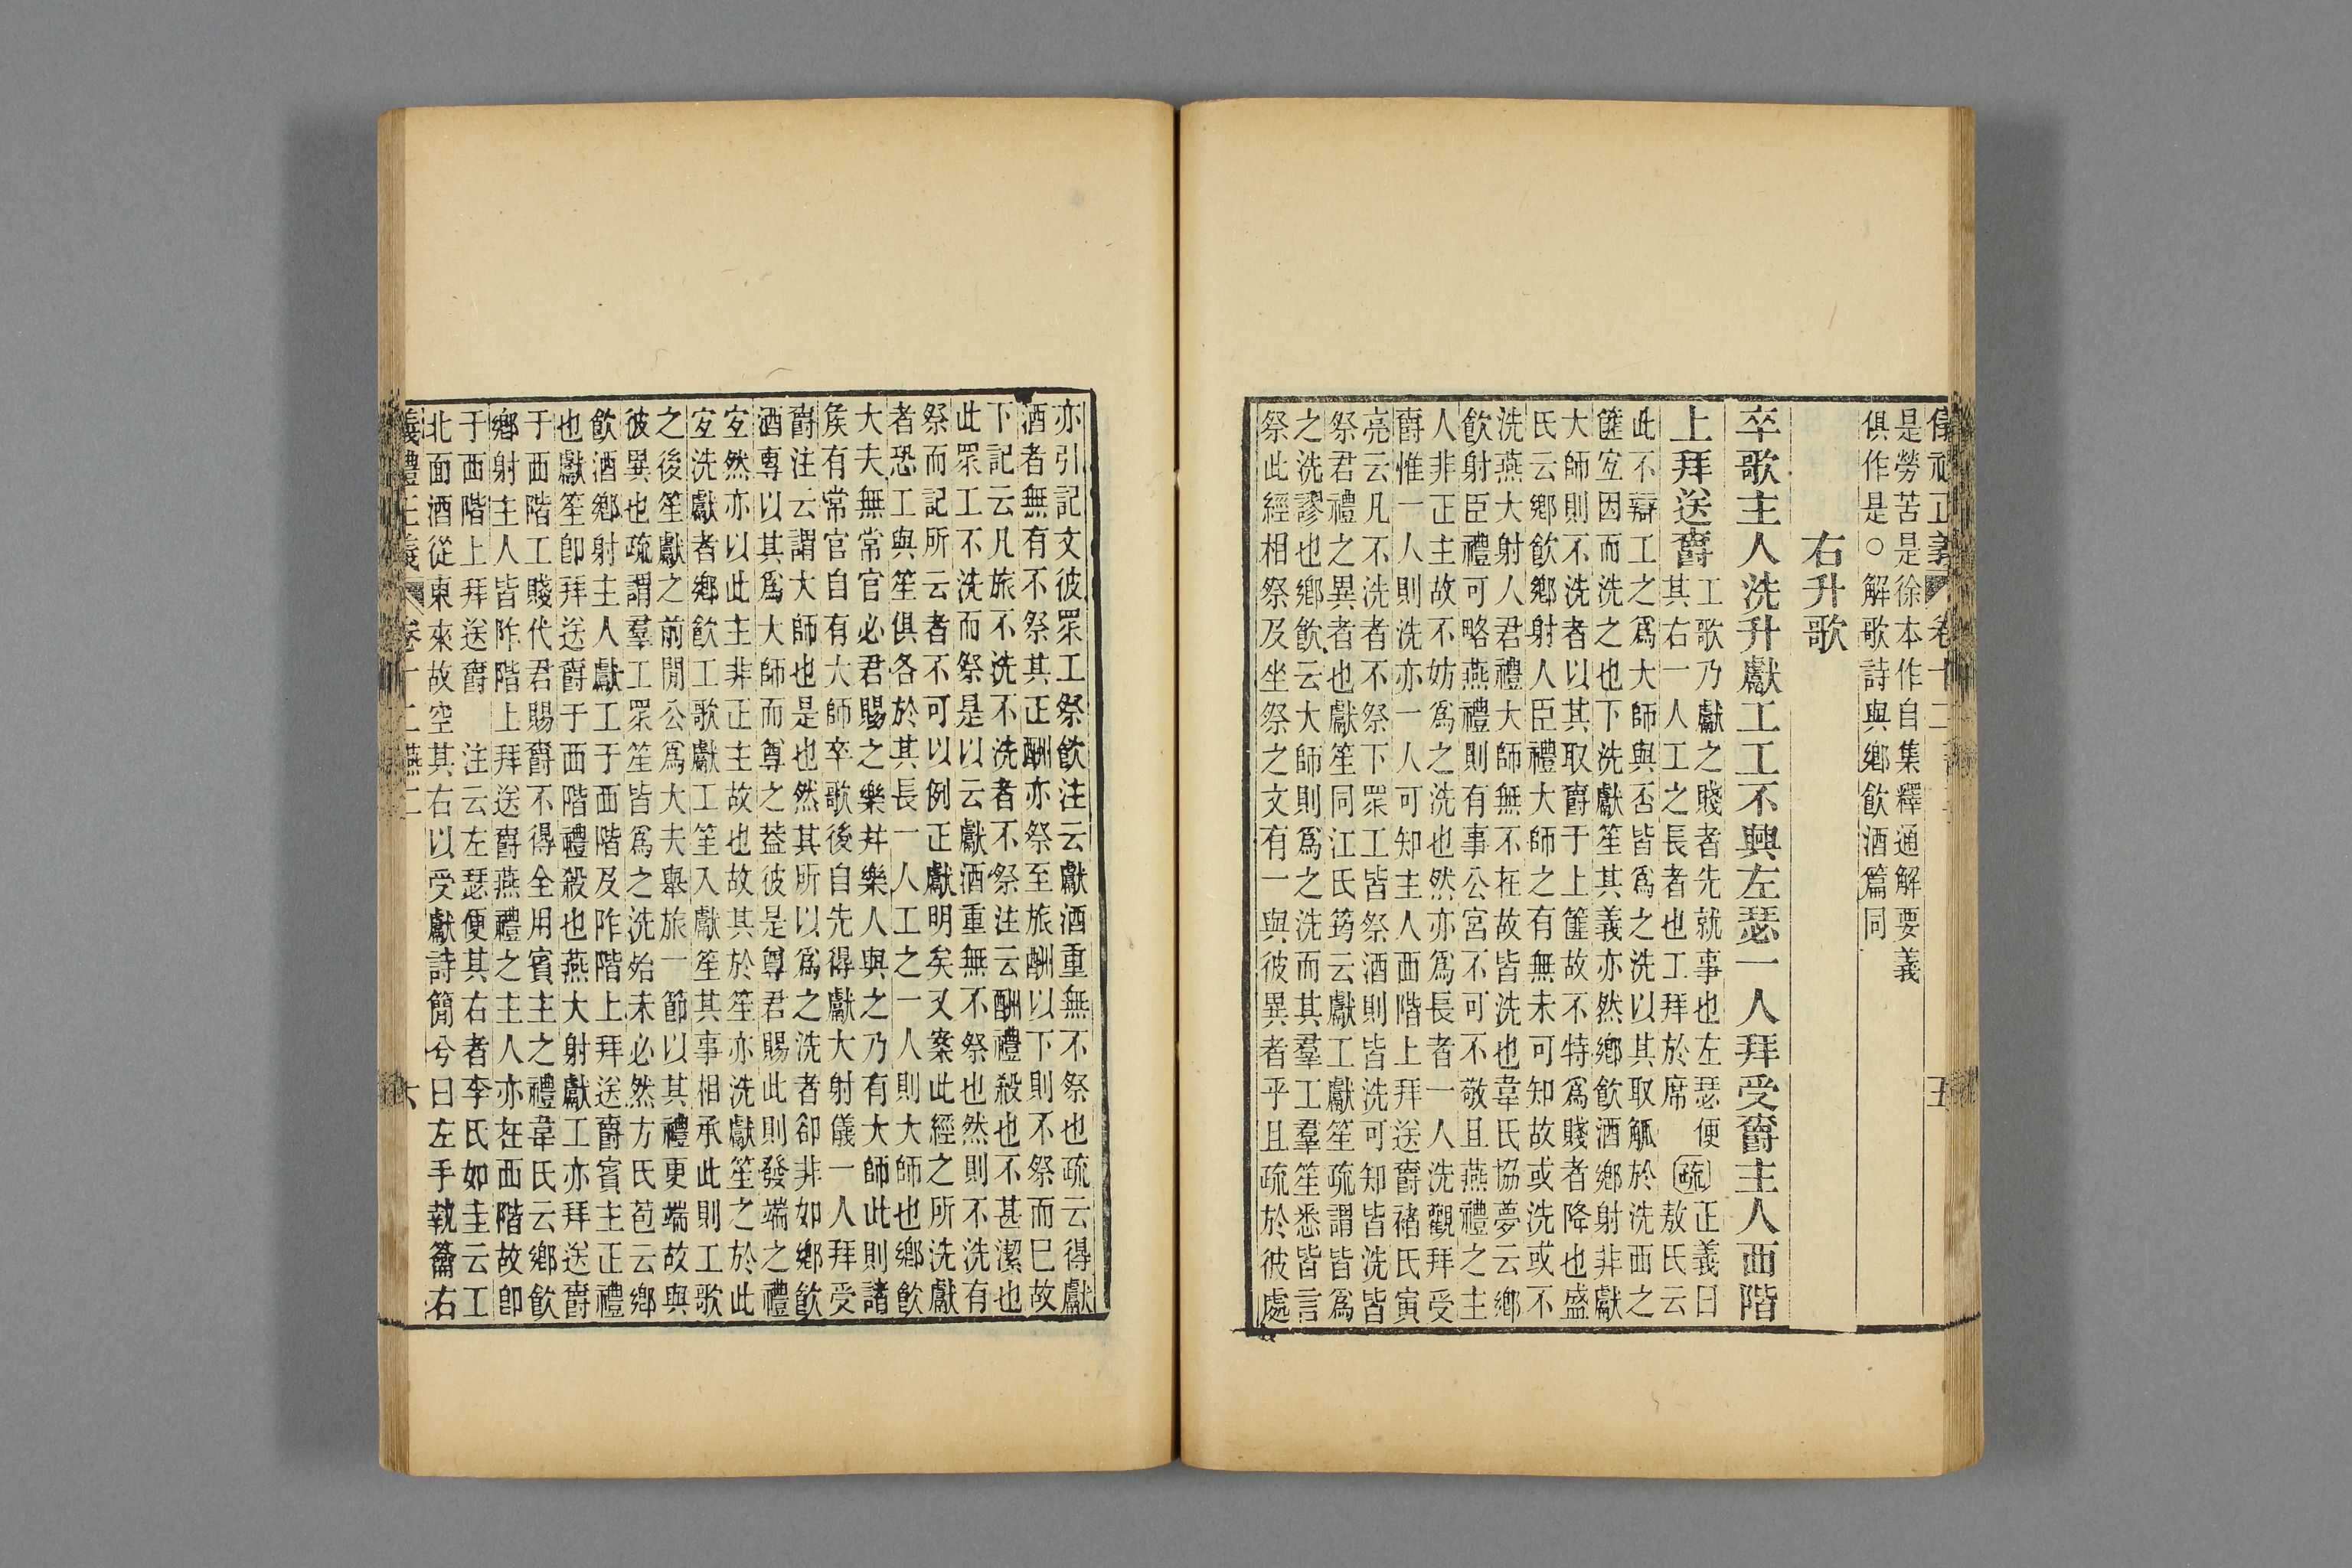 是勞苦是徐本作自集釋通解要義
俱作是○解歌詩與鄉飲酒篇同
右升歌
卒歌主人洗升獻工工不興左瑟一人拜受爵主人西階
上拜送爵
工歌乃獻之賤者先就事也左瑟便
其右一人工之長者也工拜於席
疏
正義曰
敖氏云
此不辯工之爲大師與否皆爲之洗以其取觚於洗西之
篚宐因而洗之也下洗獻笙其義亦然鄉飲酒鄉射非獻
大師則不洗者以其取爵于上篚故不特爲賤者降也盛
氏云鄉飲鄉射人臣禮大師之有無未可知故或洗或不
洗燕大射人君禮大師無不在故皆洗也韋氏協夢云鄉
飲射臣禮可略燕禮則有事公宮不可不敬且燕禮之主
人非正主故不妨爲之洗也然亦爲長者一人洗觀拜受
爵惟一人則洗亦一人可知主人西階上拜送爵褚氏寅
亮云凡不洗者不祭下眾工皆祭酒則皆洗可知皆洗皆
祭君禮之異者也獻笙同江氏筠云獻工獻笙疏謂皆爲
之洗謬也鄉飲云大師則爲之洗而其羣工羣笙悉皆言
祭此經相祭及坐祭之文有一與彼異者乎且疏於彼處
亦引記文彼眾工祭飲注云獻酒重無不祭也疏云得獻
酒者無有不祭其正酬亦祭至旅酬以下則不祭而已故
下記云凡旅不洗不洗者不祭注云酬禮殺也不甚潔也
此眾工不洗而祭是以云獻酒重無不祭也然則不洗有
祭而記所云者不可以例正獻明矣又案此經之所洗獻
者恐工與笙俱各於其長一人工之一人則大師也鄉飲
大夫無常官必君賜之樂并樂人與之乃有大師此則諸
矦有常官自有大師卒歌後自先得獻大射儀一人拜受
爵注云謂大師也是也然其所以爲之洗者卻非如鄉飲
酒專以其爲大師而尊之葢彼是尊君賜此則發端之禮
宐然亦以此主非正主故也故其於笙亦洗獻笙之於此
宐洗獻者鄉飲工歌獻工笙入獻笙其事相承此則工歌
之後笙獻之前閒公爲大夫舉旅一節以其禮更端故與
彼異也疏謂羣工眾笙皆爲之洗始未必然方氏苞云鄉
飲酒鄉射主人獻工于西階及阼階上拜送爵賓主正禮
也獻笙卽拜送爵于西階禮殺也燕大射獻工亦拜送爵
于西階工賤代君賜爵不得全用賓主之禮韋氏云鄉飲
鄉射主人皆阼階上拜送爵燕禮之主人亦在西階故卽
于西階上拜送爵 注云左瑟便其右者李氏如圭云工
北面酒從東來故空其右以受獻詩簡兮曰左手執籥右